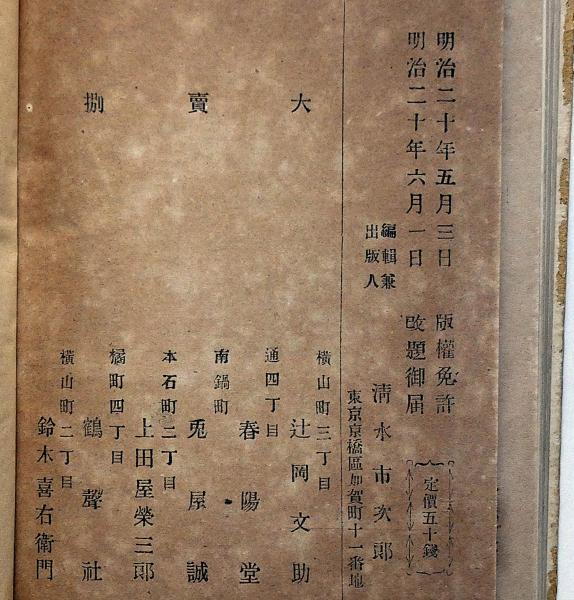 明治二十年五月三日 版權免許
明治二十年六月一日 改題御届
定價五十錢
編輯兼
出版人
清水市次郎
東京京橋區加賀町十一番地
大賣捌
横山町三丁目
辻岡文助
通四丁目
春陽堂
南鍋町
兎屋誠
本石町二丁目
上田屋榮三郎
橘町四丁目
鶴聲社
横山町二丁目
鈴木喜右衛門